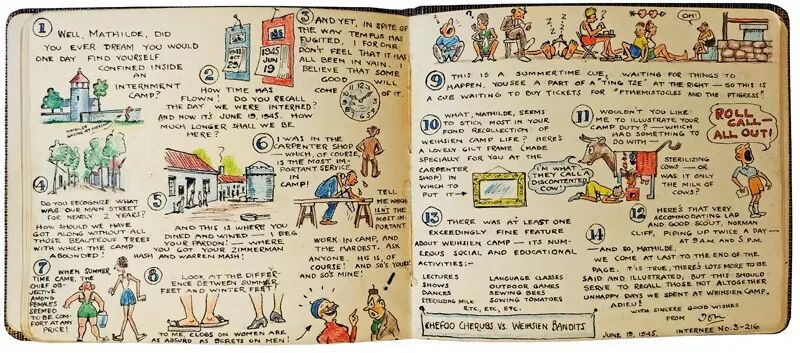 1 WELL, MATHILDE, DID
YOU EVER DREAM YOU WOULD
ONE DAY FIND YOURSELF
CONFINED INSIDE
AN
INTERNMENT
CAMP?
2 HOW TIME HAS
FLOWN! DO YOU RECALL
THE DAY WE WERE INTERNED?
AND NOW ITS JUNE 19, 1945. HOW
MUCH LONGER SHALL WE BE
HERE?
1945
JUN
19
3 AND YET, IN SPITE OF
THE WAY TEMPUS HAS
FUGITED, I FOR ONE
DON'T FEEL THAT IT HAS
ALL BEEN IN VAIN. I
BELIEVE THAT SOME
GOOD WILL
COME OF IT.
4
DO YOU RECOGNIZE WHAT
WAS OUR MAIN STREET
FOR NEARLY 2 YEARS?
HOW SHOULD WE HAVE
GOT ALONG WITHOUT ALL
THOSE BEAUTEOUS TREES
WITH WHICH THE CAMP
ABOUNDED!
5
AND THIS IS WHERE YOU
DINED AND WINED — I BEG
YOUR PARDON — WHERE
YOU GOT YOUR ZIMMERMAN
HASH AND WARREN MASH!
6 I WAS IN THE
CARPENTER SHOP
— WHICH, OF COURSE,
IS THE MOST IM-
PORTANT SERVICE
IN
CAMP!
TELL
ME WHICH
ISNT THE
MOST IM-
PORTANT
WORK IN CAMP, AND
THE HARDEST. ASK
ANYONE. HE IS, OF
COURSE! AND SO'S YOURS!
AND SO'S MINE!
7 WHEN SUMMER
TIME CAME, THE
CHIEF OB-
JECTIVE
AMONG
FEMALES
SEEMED
TO BE COM-
FORT AT ANY
PRICE!
8 LOOK AT THE DIFFER-
ENCE BETWEEN SUMMER
FEET AND WINTER FEET!
TO ME, CLOGS ON WOMEN ARE
AS ABSURD AS BERETS ON MEN!
OH!
9 THIS IS A SUMMERTIME CUE, WAITING FOR THINGS TO
HAPPEN. YOU SEE A PART OF A "TING TZE" AT THE RIGHT — SO THIS IS
A CUE WAITING TO BUY TICKETS FOR "PTHEMISTOCLES AND THE PTIGRESS".
10 WHAT, MATHILDE, SEEMS
TO STICK MOST IN YOUR
FOND RECOLLECTION OF
WEIHSIEN CAMP LIFE? HERE'S
A LOVELY GILT FRAME (MADE
SPECIALLY FOR YOU AT THE
CARPENTER
SHOP) IN
WHICH TO
PUT IT →
I'M WHAT
THEY CALL A
DISCONTENTED
COW!
11 WOULDN'T YOU LIKE
ME TO ILLUSTRATE YOUR
CAMP DUTY? — WHICH
HAD SOMETHING TO
DO WITH —
STERILIZING
COWS — OR
WAS IT ONLY
THE MILK
OF COWS?
ROLL
CALL —
ALL OUT!
12 HERE'S THAT VERY
ACCOMMODATING LAD
AND GOOD SCOUT, NORMAN
CLIFF, PIPING UP TWICE A DAY —
AT 9 A.M. AND 5 P.M.
13 THERE WAS AT LEAST ONE
EXCEEDINGLY FINE FEATURE
ABOUT WEIHSIEN CAMP — ITS NUM-
EROUS SOCIAL AND EDUCATIONAL
ACTIVITIES:-
LECTURES LANGUAGE CLASSES
SHOWS OUTDOOR GAMES
DANCES SEWING BEES
STERILIZING MILK SOWING TOMATOES
ETC, ETC, ETC.
CHEFOO CHERUBS VS. WEIHSIEN BANDITS
14
— AND SO, MATHILDE,
WE COME AT LAST TO THE END OF THE
PAGE. IT IS TRUE, THERE'S LOTS MORE TO BE
SAID AND ILLUSTRATED, BUT THIS SHOULD
SERVE TO RECALL THOSE NOT ALTOGETHER
UNHAPPY DAYS WE SPENT AT WEIHSIEN CAMP.
ADIEU!
WITH SINCERE GOOD WISHES
FROM
JUNE 19, 1945. INTERNEE NO. 3-216